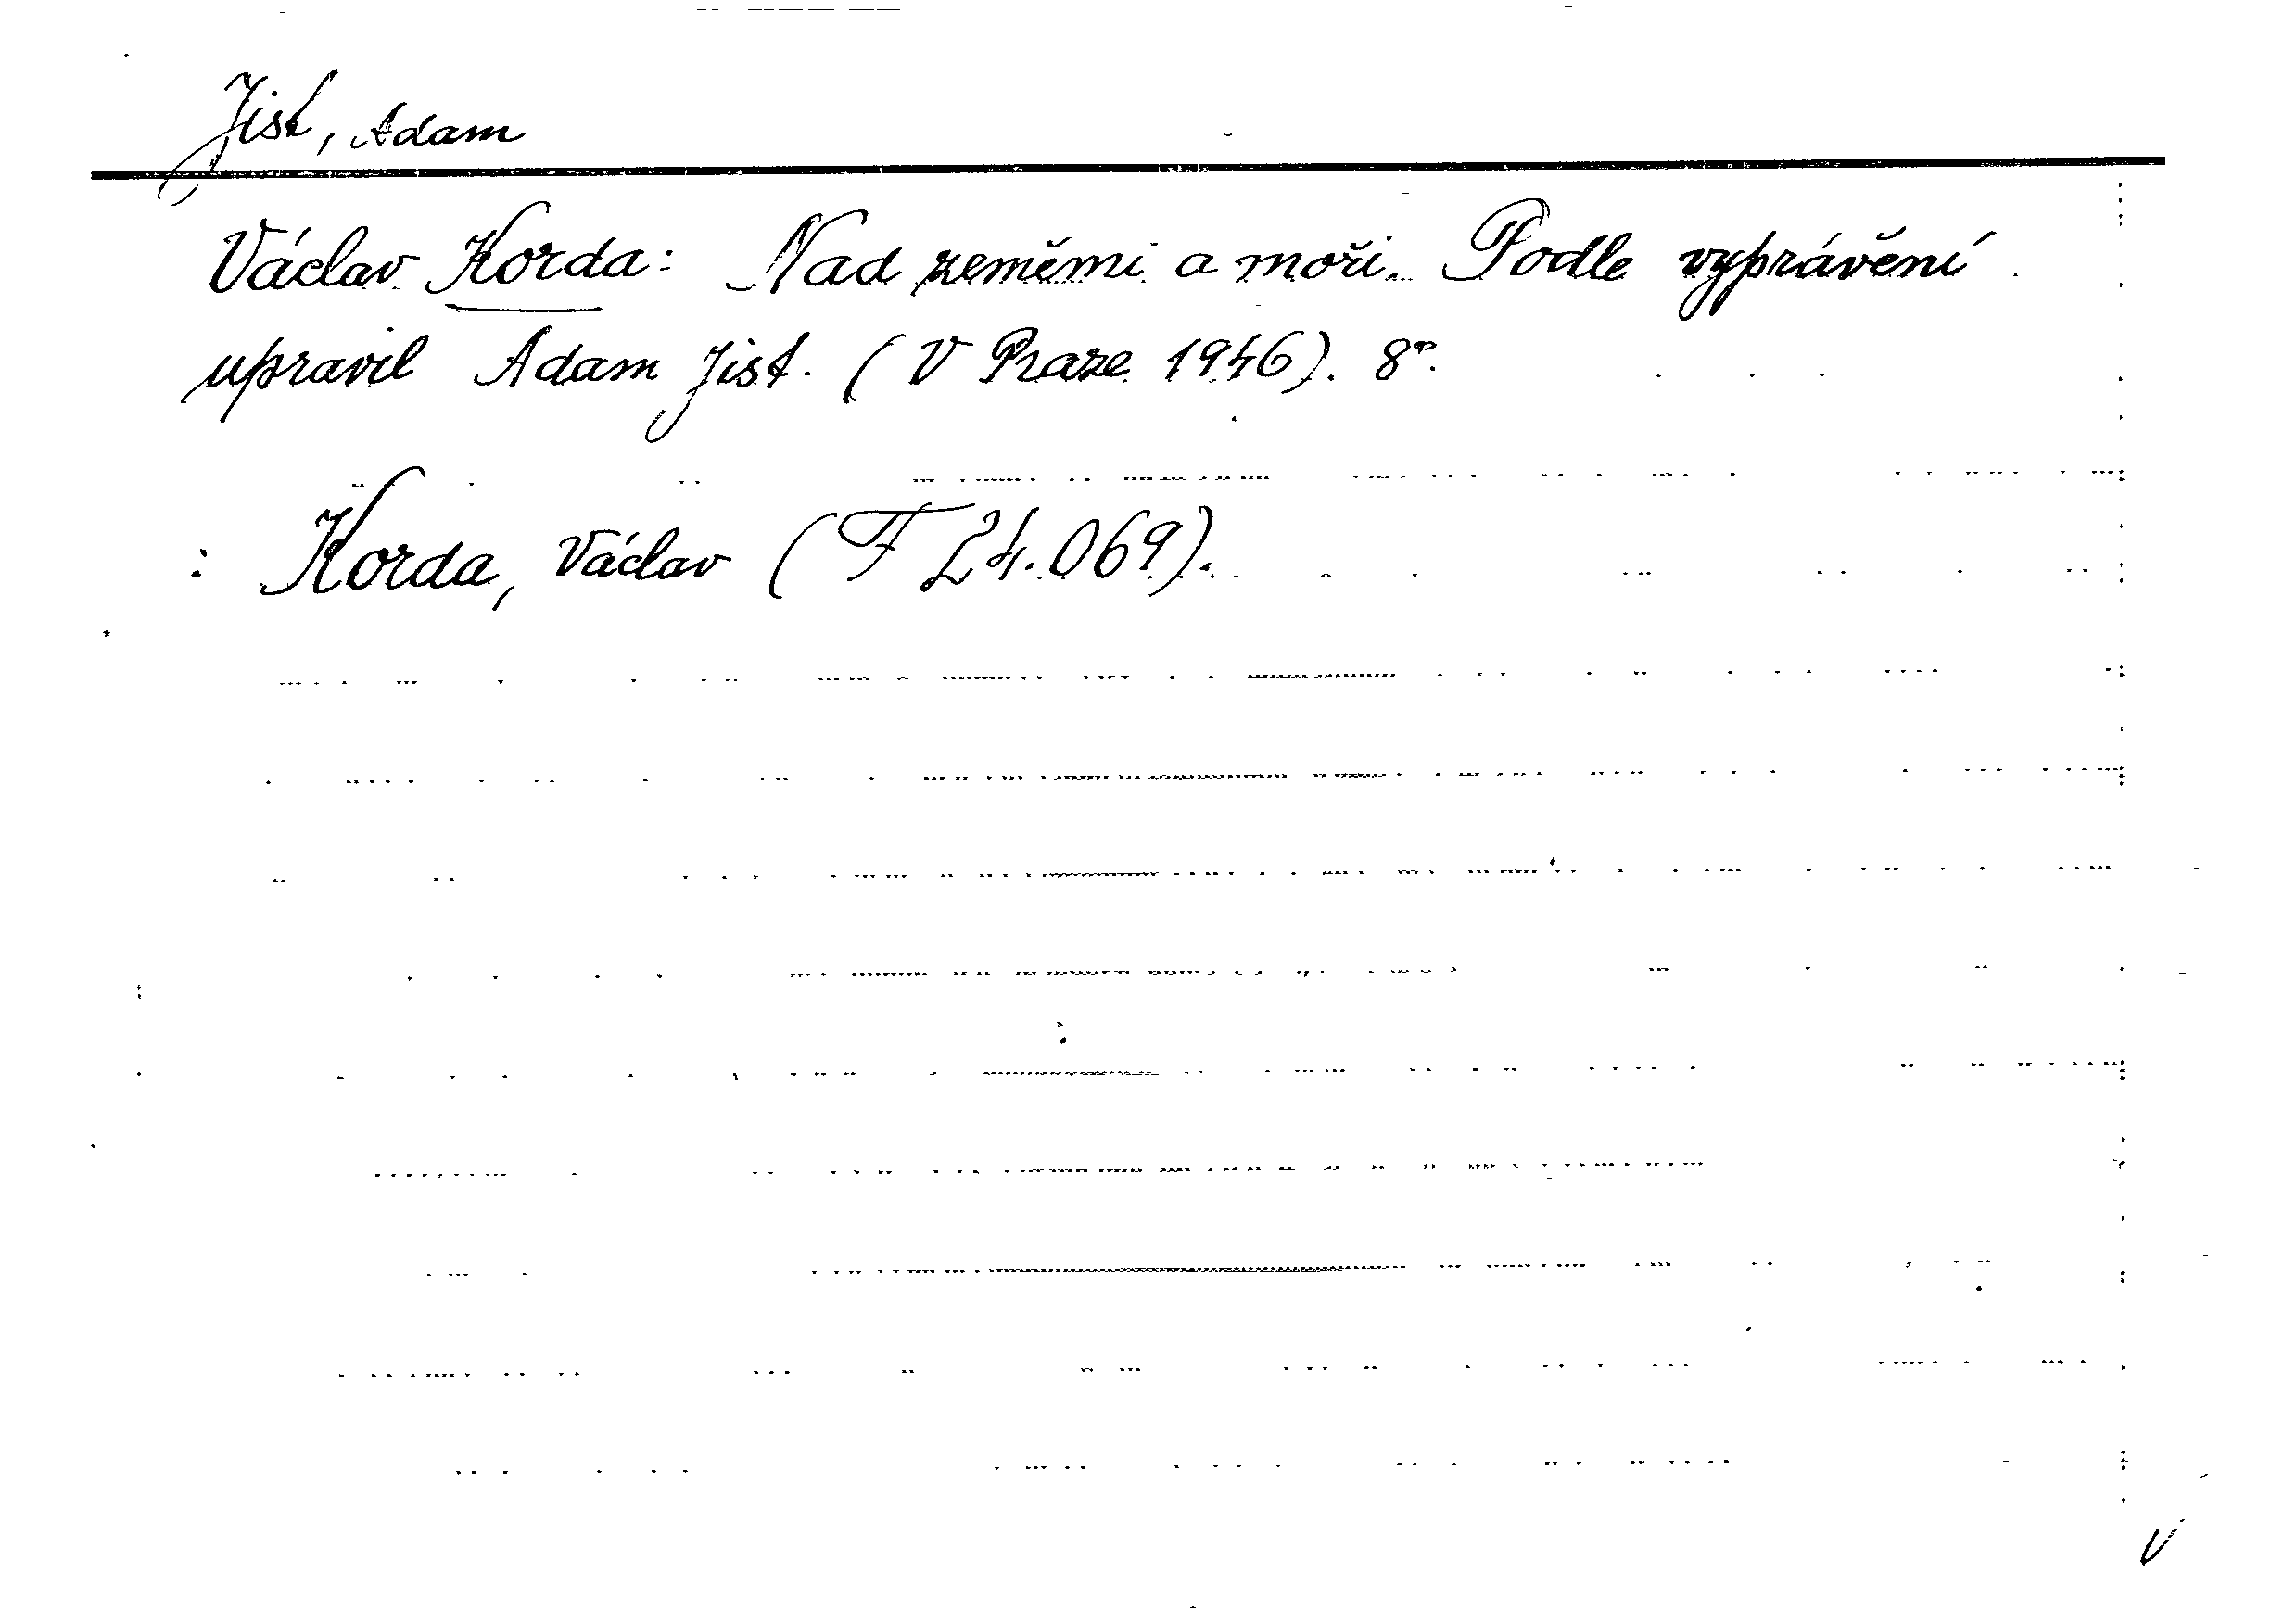 Jist, Adam
Václav Korda: Nad zeměmi a moři. Podle vyprávění
upravil Adam Jist. (V Praze 1946). 8°.
: Korda, Václav (F 24.069).
V